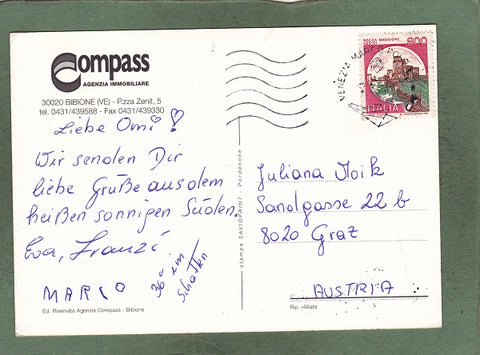 Compass
AGENZIA IMMOBILIARE
30020 BIBIONE (VE) - P.zza Zenit, 5
tel. 0431/439588 - Fax 0431/439330
Liebe Omi!
Wir senden Dir
liebe Grüße aus dem
heißen sonnigen Süden.
Eva, Franzi
MARIO
36° im
Schatten
Ed. Riservata Agenzia Compass - Bibione
stampa SAVIOPRINT - Pordenone
VENEZIA MARCO
ROCCA MAGGIORE
800
ITALIA
Juliana Moik
Sandgasse 22 b
8020 Graz
AUSTRIA
Rip. vietata